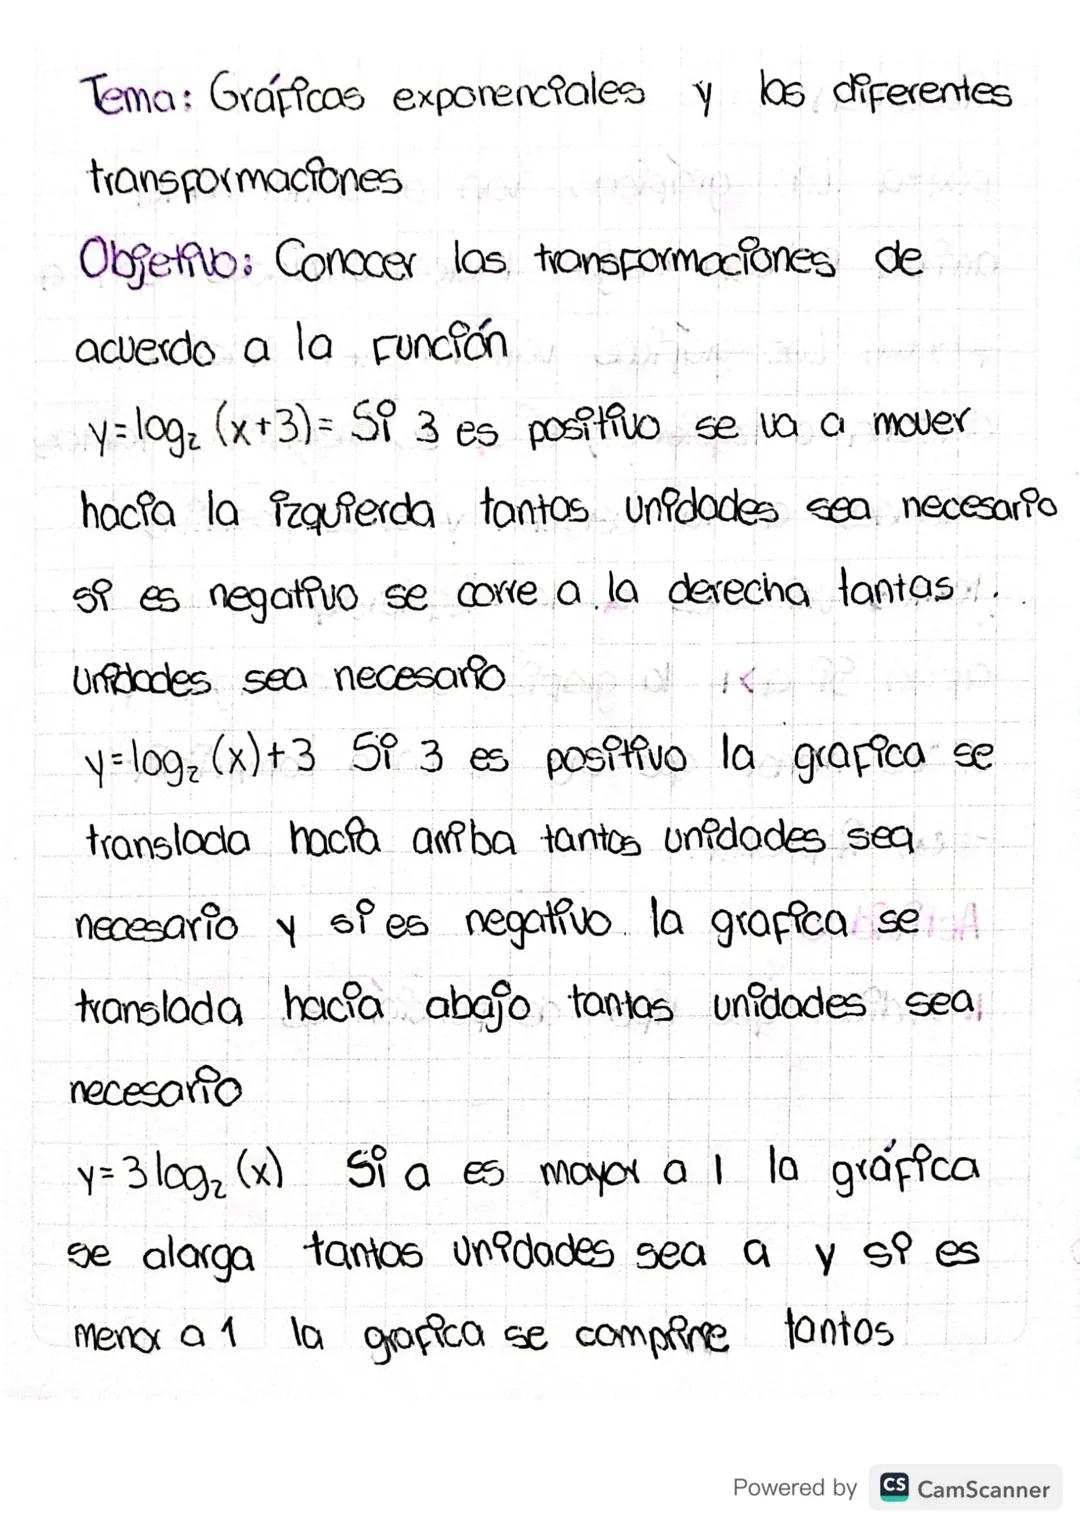 Tema: Gráficas exponenciales y las diferentes
transformaciones
Objetivo: Conocer las transformaciones de
acuerdo a la función
y=log₂ (x+3)= Si 3 es positivo se va a mover
hacia la izquierda tantas unidades sea necesario
si es negativo se corre a la derecha tantas
unidades sea necesario
y=log₂ (x)+3 Si 3 es positivo la grafica se
translada hacia arriba tantas unidades sea
necesario y si es negativo la grafica se
translada hacia abajo tantas unidades sea
necesario
y=3log₂ (x) Si a es mayor a 1 la gráfica
se alarga tantas unidades sea a y si es
menor a 1 la grafica se comprime tantos
Powered by CS CamScanner